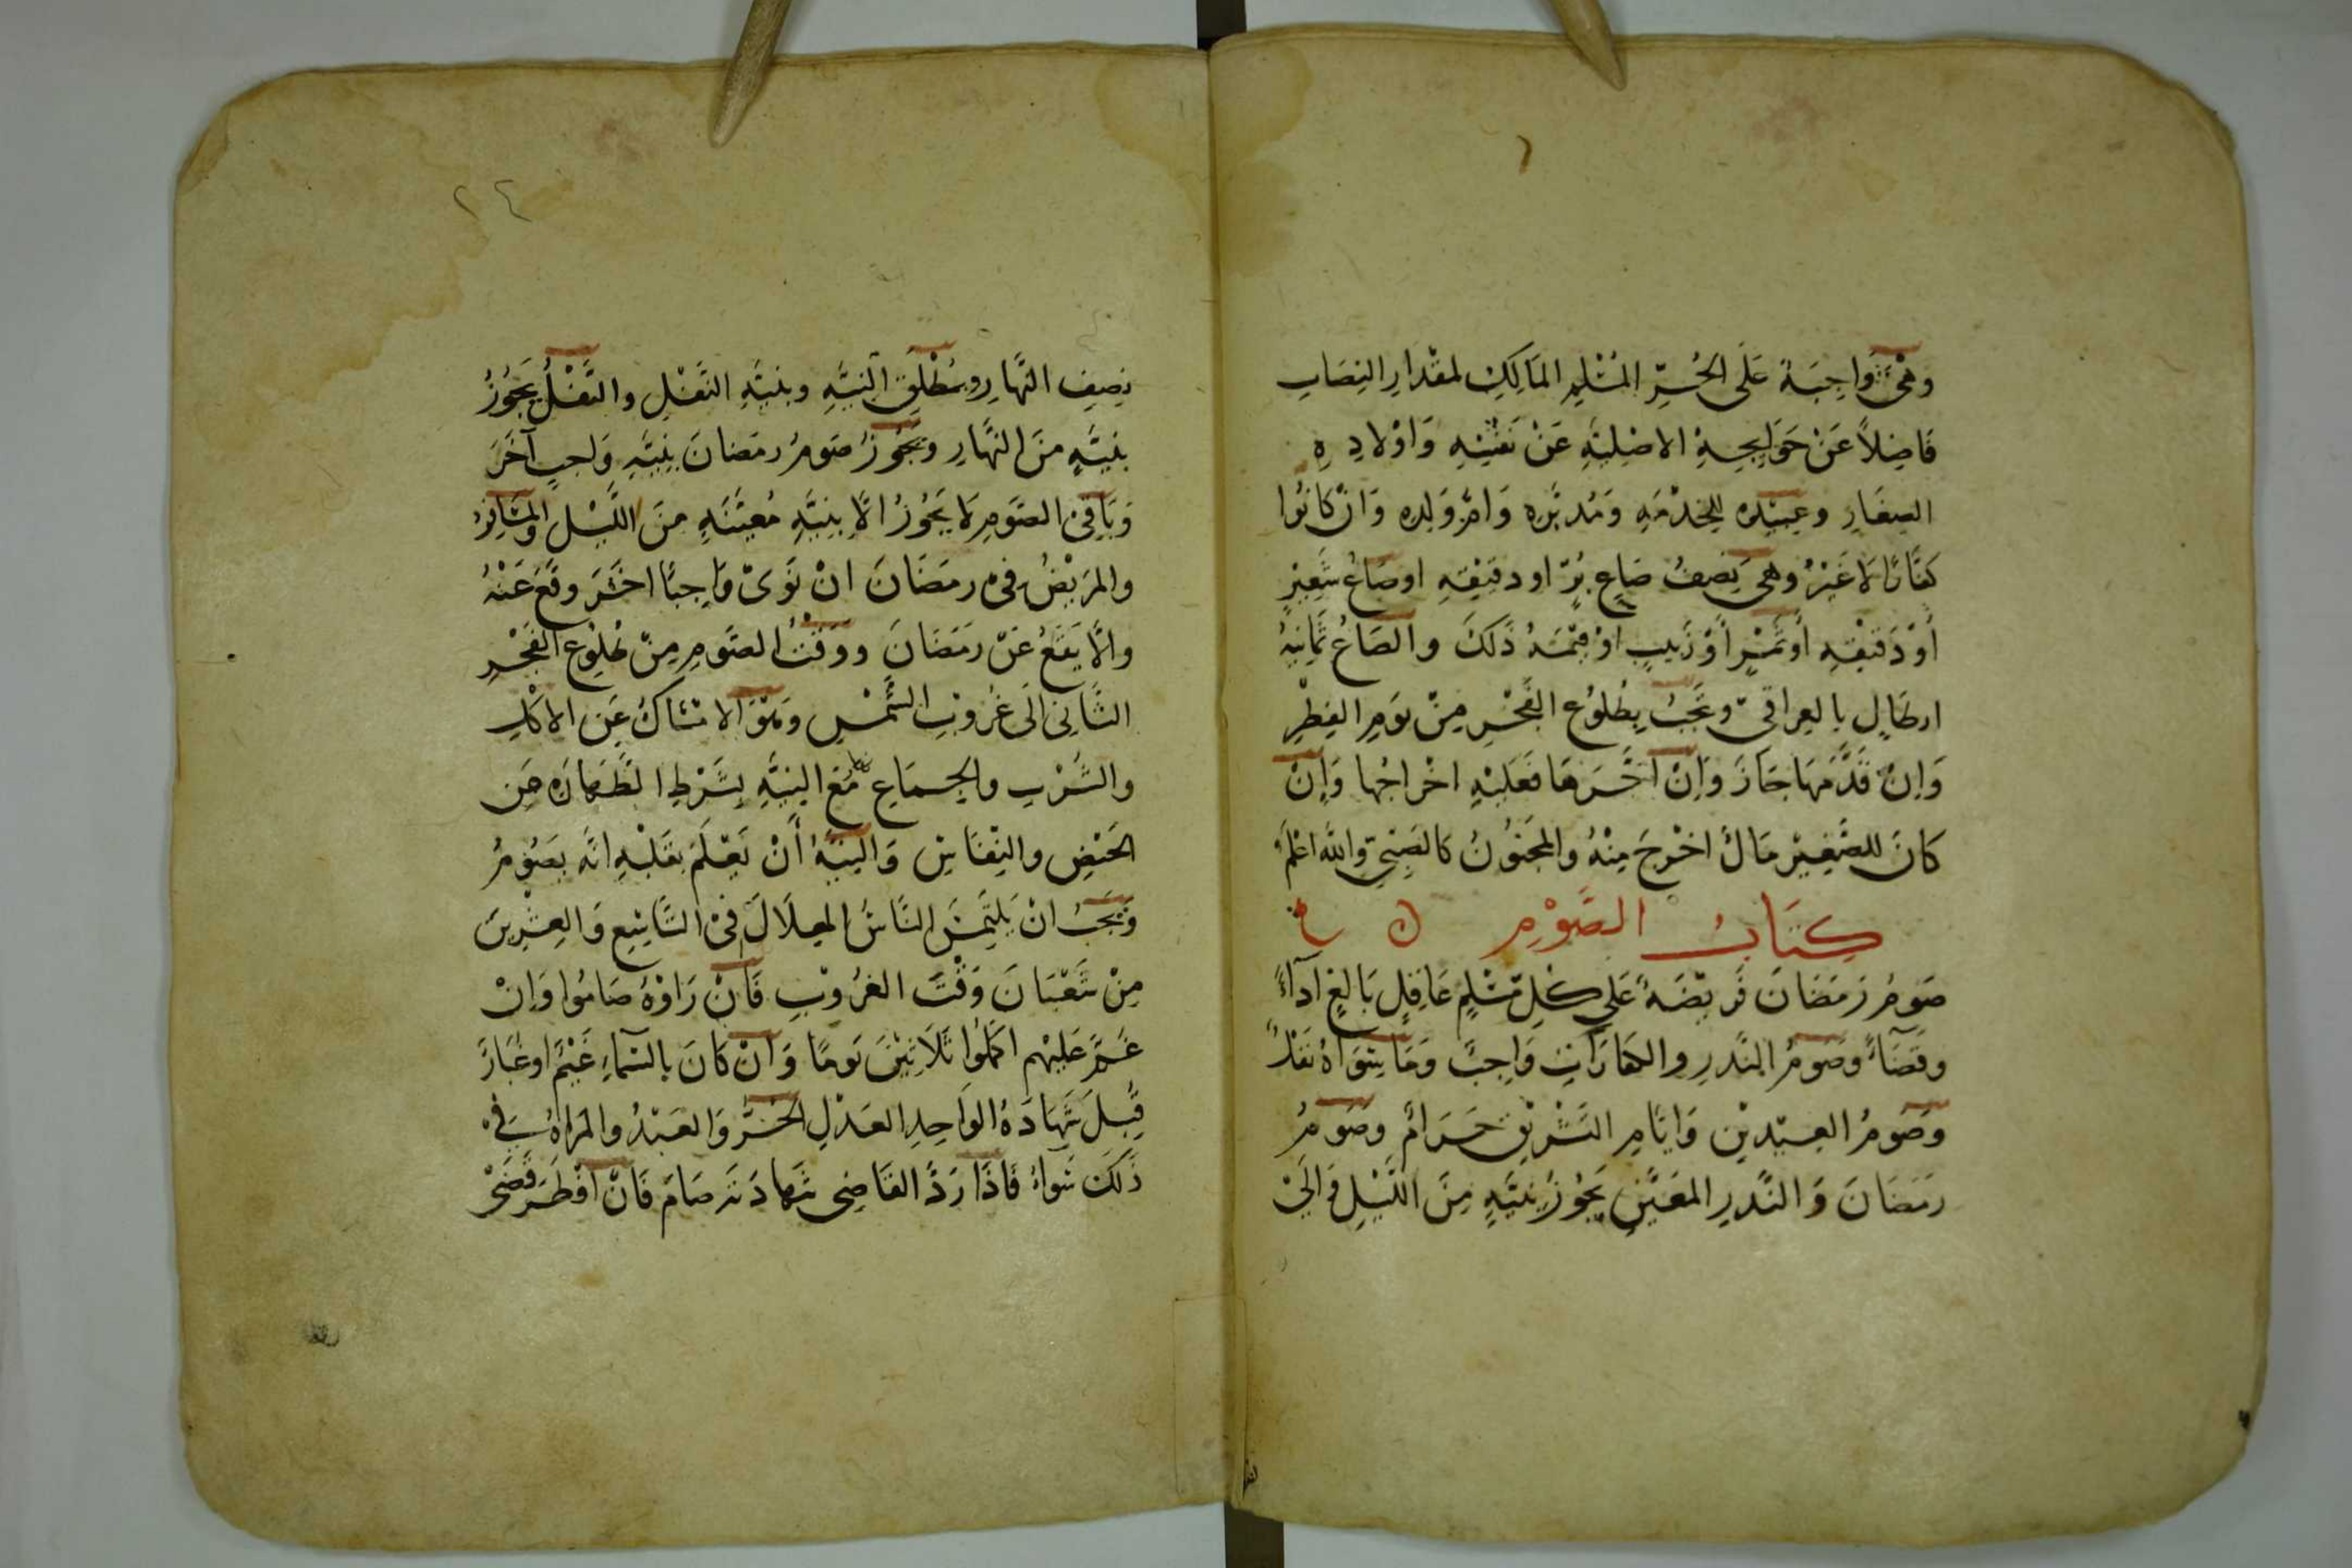 وَهْىَ وَاجِبَةٌ عَلَى الحُرِّ المُسْلِمِ المَالِكِ لمقْدَارِ النِصَابِ
فَاضِلاً عَنْ حَوَايِجِهِ الاصْلِيَّهِ عَنْ نَفْسِهِ وَاوْلادِهِ
الصِغَارِ وعَبِيْدِه لِلخِدْمَهِ وَمُدَبَّرِه وَامِّ وَلَدِه وَانْ كَانُوا
كفَّارًا لَا غَيْرُ وهى نِصِفُ صَاعِ بُرٍّ او دقيْقِهِ اوصَاعُ شَعِيْرٍ
أَوْ دَقيْقِهِ أَو تَمْرٍ أَوْ زَبيبٍ اوْ قِيْمَةُ ذَلكَ والصَاعُ ثمَانِيَهُ
ارطَالٍ بالعِراقىّ وتجَبُ بِطُلوُعِ الفَجْرِ مِنْ يَومِ الفِطْرِ
وَاِنْ قَدَّمَهَا جَازَ وَاِنْ اَخَّرَهَا فَعَلَيْهِ اخْراجُها وَاِنْ
كانَ للصَّغِيْرِ مَالٌ اخْرجَ مِنْهُ والمجَنوُنُ كالصَبِىِّ واللهُ اعْلَمُ
كِتَابُ الصَّوْمِ
صَومُ رَمَضَانَ فَرِيْضَهٌ عَلى كُلِّ مُسْلِمٍ عَاقِلٍ بَالِغٍ اَدآءً
وقَضَآءً وصَومُ النَّدرِ والكفارَاتِ وَاجِبٌ وَمَا سِوَاهُ نَفْلٌ
وصَومُ العِيْدينِ وَايَّامِ التَشْرِيْقِ حَرَامٌ وصَومُ
رمَضَانَ وَالنَّدرِ المعَيَّنِ يَجُوُزُ بِنيَّهٍ مِنَ اللَّيْلِ وَالَى
٢٤
نِصِفِ النَّهارِ وبمُطْلَقِ النِيَّهِ وبنيَّهِ النَفْلِ والنَّفْلُ يَجُوُزُ
بنيَّهٍ منَ النَّهارِ ويَجُوزُ صَومُ رمَضانَ بِنِيَّهِ وَاجبٍ آخَرَ
وَبَاقِىْ الصَّومِ لَا يَجُوزُ الَّا بِنيَّهٍ مُعيَّنَهٍ منَ اللَّيْل والمسَافِرُ
والمَريْضُ فىْ رمَضَانَ انْ نَوَىْ وَاجِبًا اخَرَ وقَعَ عَنْهُ
والَّا يَقَعُ عَنْ رَمَضَانَ ووَقْتُ الصَّومِ مِنْ طُلوُعِ الفَجْرِ
الثَانِى الَى غُروْبِ الشَّمْسِ وَهُوَ الامْسَاكُ عَنِ الاكْلِ
والشُرْبِ والجِمَاعِ مَعَ النِيَّهِ بِشَرْطِ الطَهارَهِ مِن
الحَيْضِ والنِفَاسِ وَالنيَّهُ أَنْ يَعْلَمَ بقَلْبهِ انَّه يصَوُمُ
وَيَجَبُ انْ يَلتَمِسَ النَّاسُ الهِلَالَ فىْ التَّاسِعِ وَالعِشْرِينَ
مِنْ شَعْبَانَ وَقْتَ الغرُوْبِ فَانْ رَاوْهُ صَامُوا وَاِنْ
غُمَّ عَليْهِم اكمَلُوا ثَلَاثِيْنَ يَومًا وَانْ كانَ بالسَّمآءِ غَيْمٌ اوغُبَارٌ
قُبِلَ شَهَادَةُ الوَاحِدِ العَدْلِ الحُرُّ وَالعَبْدُ والمَراهُ فىْ
ذَلكَ سَواءُ فَاذَا رَدَّ القَاضِى شَهادَتَه صَامَ فَانْ اَفْطَرَ قَضَىْ